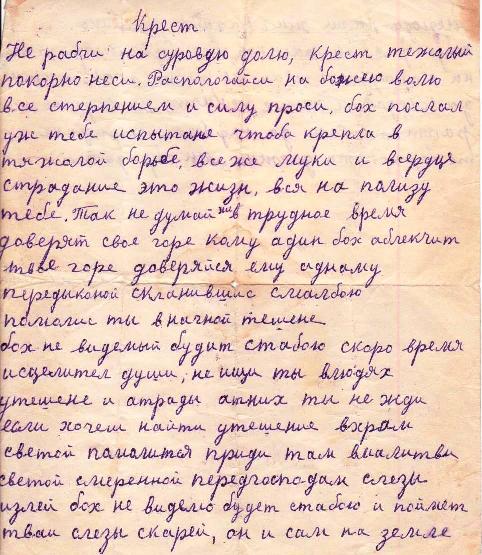 Крест
Не рабчи на суровую долю, крест тежолый
покорно неси. Распологайси на божею волю
все стерпением и силу проси, бох послал
уж тебе испытане чтоба крепла в
тяжолой борьбе, все же муки и всердце
страдание это жизн, вся на ползу
тебе. Так не думай ни в трудное время
доверят свое горе кому адин бох аблекчит
твое горе доверяйся ему аднаму
передыконой скланившис смалбою
памолис ты в начной тешене
бох не виделый будит стабою скоро время
исцелител души, не ищи ты влюдях
утешене и атрады атних ты не жди
если хочеш найти утешение вхрам
светой памалится приди там вмалитви
светой смеренной передгосподам слезы
излей бох не видемо будет стабою и поймет
тваи слезы скарей, он и сам на земле